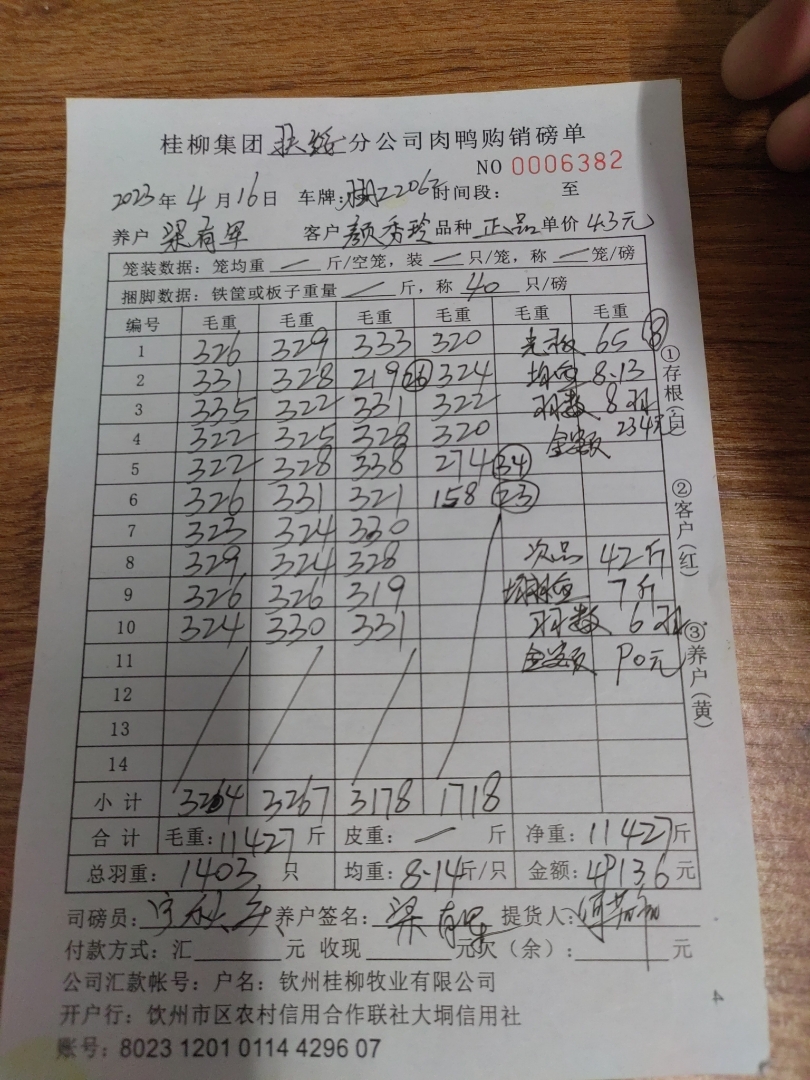 桂柳集团 扶绥 分公司肉鸭购销磅单
NO 0006382
2023 年 4 月 16 日 车牌: 22062 时间段: 至
养户 梁有军 客户 颜秀玲 品种 正品 单价 4.3元
笼装数据: 笼均重 — 斤/空笼, 装 — 只/笼, 称 — 笼/磅
捆脚数据: 铁筐或板子重量 — 斤, 称 40 只/磅
编号 毛重 毛重 毛重 毛重 毛重 毛重
1 326 329 333 320 65 ⑧
2 331 328 219 ㉖ 324 均重 8.13
3 335 322 331 322 羽数 8羽
4 322 325 328 320 金额 234元
5 322 328 338 274 ㉞
6 326 331 321 158 ㉓
7 323 324 330
8 329 324 328 次品 42斤
9 326 326 319 均重 7斤
10 324 330 331 羽数 6羽
11 金额 90元
12
13
14
小计 3264 3267 3178 1718
合计 毛重: 11427 斤 皮重: — 斤 净重: 11427 斤
总羽重: 1403 只 均重: 8.14 斤/只 金额: 49136 元
司磅员: 养户签名: 梁有军 提货人:
付款方式: 汇 元 收现 元欠(余): 元
公司汇款帐号: 户名: 钦州桂柳牧业有限公司
开户行: 钦州市区农村信用合作联社大垌信用社
账号: 8023 1201 0114 4296 07
①存根(白)
②客户(红)
③养户(黄)